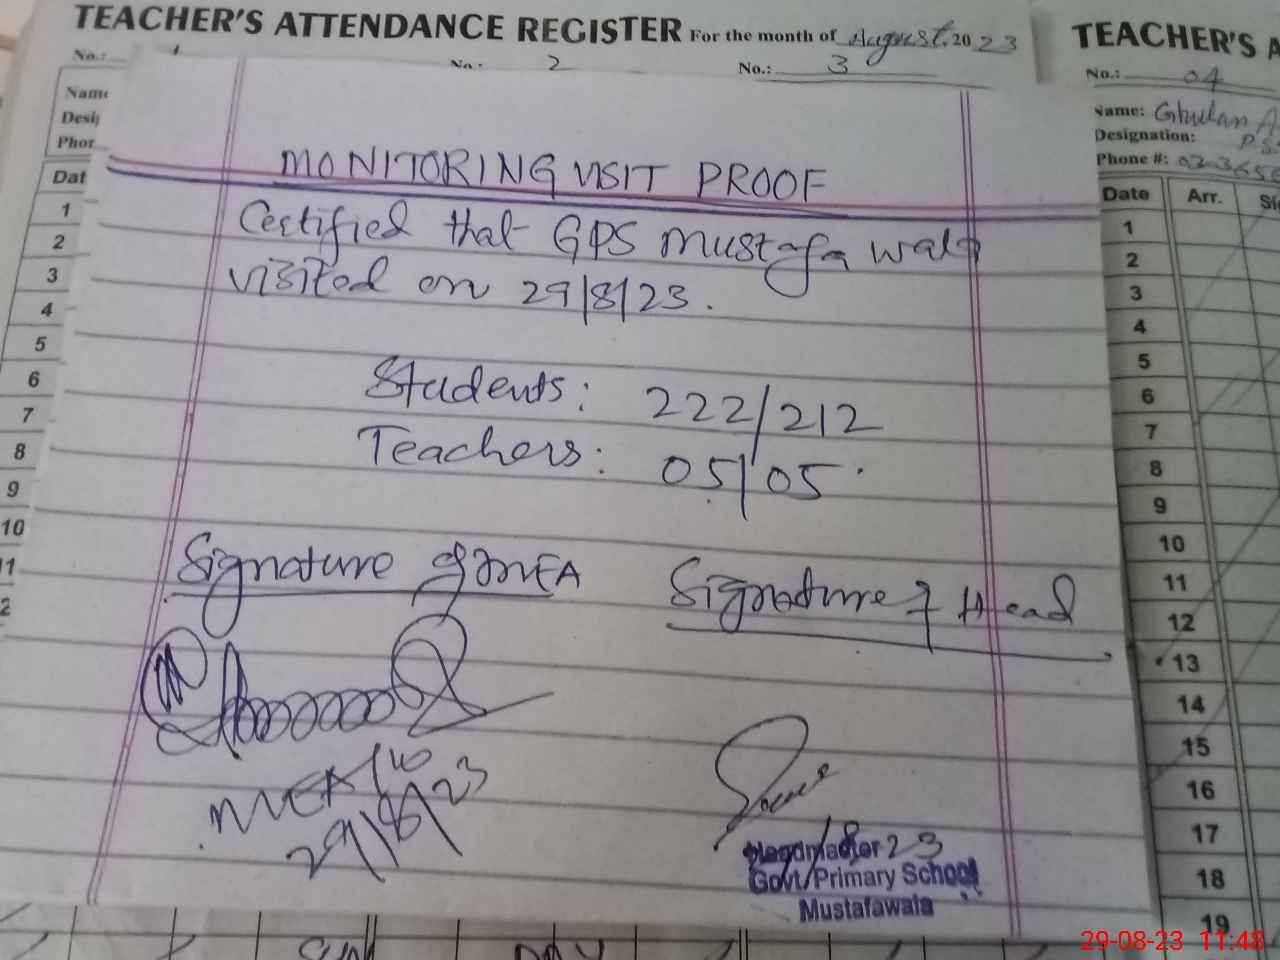 TEACHER'S ATTENDANCE REGISTER For the month of August. 2023
No.: 1
No.: 2
No.: 3
MONITORING VISIT PROOF
Certified that GPS Mustafa wala
visited on 29/8/23.
Students: 222/212
Teachers: 05/05
Signature of MEA
Signature of Head
MEA/10
29/8/23
29/8/23
Headmaster
Govt/Primary School
Mustafawala
Name
Desig
Phor
Dat
1
2
3
4
5
6
7
8
9
10
11
2
TEACHER'S A
No.: 04
Name: Ghulam A
Designation: PS
Phone #:
Date Arr. Si
1
2
3
4
5
6
7
8
9
10
11
12
13
14
15
16
17
18
19
SUN DAY
29-08-23 11:48